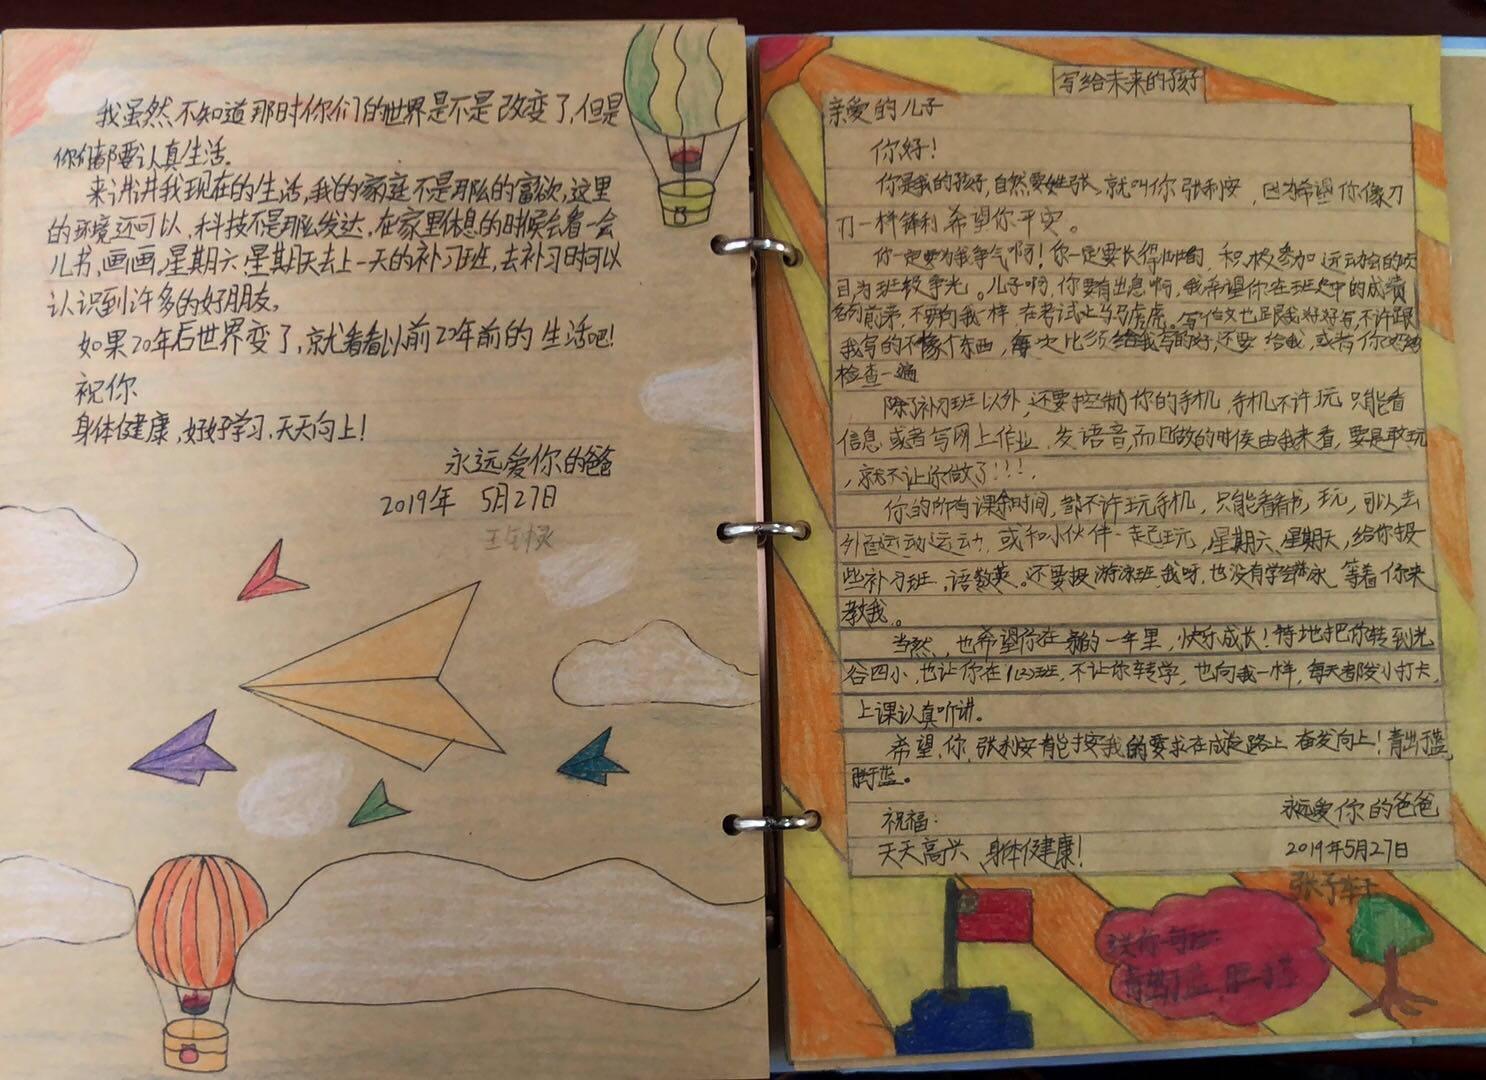 我虽然不知道那时你们的世界是不是改变了,但是
你们都要认真生活。
来讲讲我现在的生活,我的家庭不是那么的富欲,这里
的环境还可以,科技不是那么发达,在家里休息的时候会看一会
儿书,画画,星期六、星期天去上一天的补习班,去补习时可以
认识到许多的好朋友。
如果20年后世界变了,就看看以前20年前的生活吧!
祝你
身体健康,好好学习,天天向上!
永远爱你的爸爸
2019年 5月27日
写给未来的孩子
亲爱的儿子
你好!
你是我的孩子,自然要姓张,就叫你张利安,因为希望你像刀
刀一样锋利希望你平安。
你一定要为我争气啊!你一定要长得帅帅的,积极参加运动会的项
目,为班级争光。儿子啊,你要有出息啊,我希望你在班中的成绩
名列前茅,不要向我一样在考试上马马虎虎。写作文也跟我好好写,不许跟
我写的不像个东西,每次比须给我写的好,还要给我,或者你妈妈
检查一遍
除了补习班以外,还要控制你的手机,手机不许玩只能看
信息或者写网上作业、发语音,而且做的时候由我来看,要是敢玩
,就不让你做了!!!
你的所有课余时间,都不许玩手机,只能看看书,玩,可以去
外面运动运动,或和小伙伴一起玩,星期六、星期天,给你报一
些补习班,语数英。还要报游泳班,我呀,也没有学会游泳,等着你来
教我。
当然,也希望你在新的一年里,快乐成长!特地把你转到光
谷四小,也让你在1(2)班,不让你转学,也向我一样,每天都发小打卡,
上课认真听讲。
希望你,张利安能按我的要求在成长路上奋发向上!青出于蓝,
胜于蓝。
祝福:
天天高兴、身体健康!
永远爱你的爸爸
2019年5月27日
张子轩
送你一句话:
青出于蓝 胜于蓝